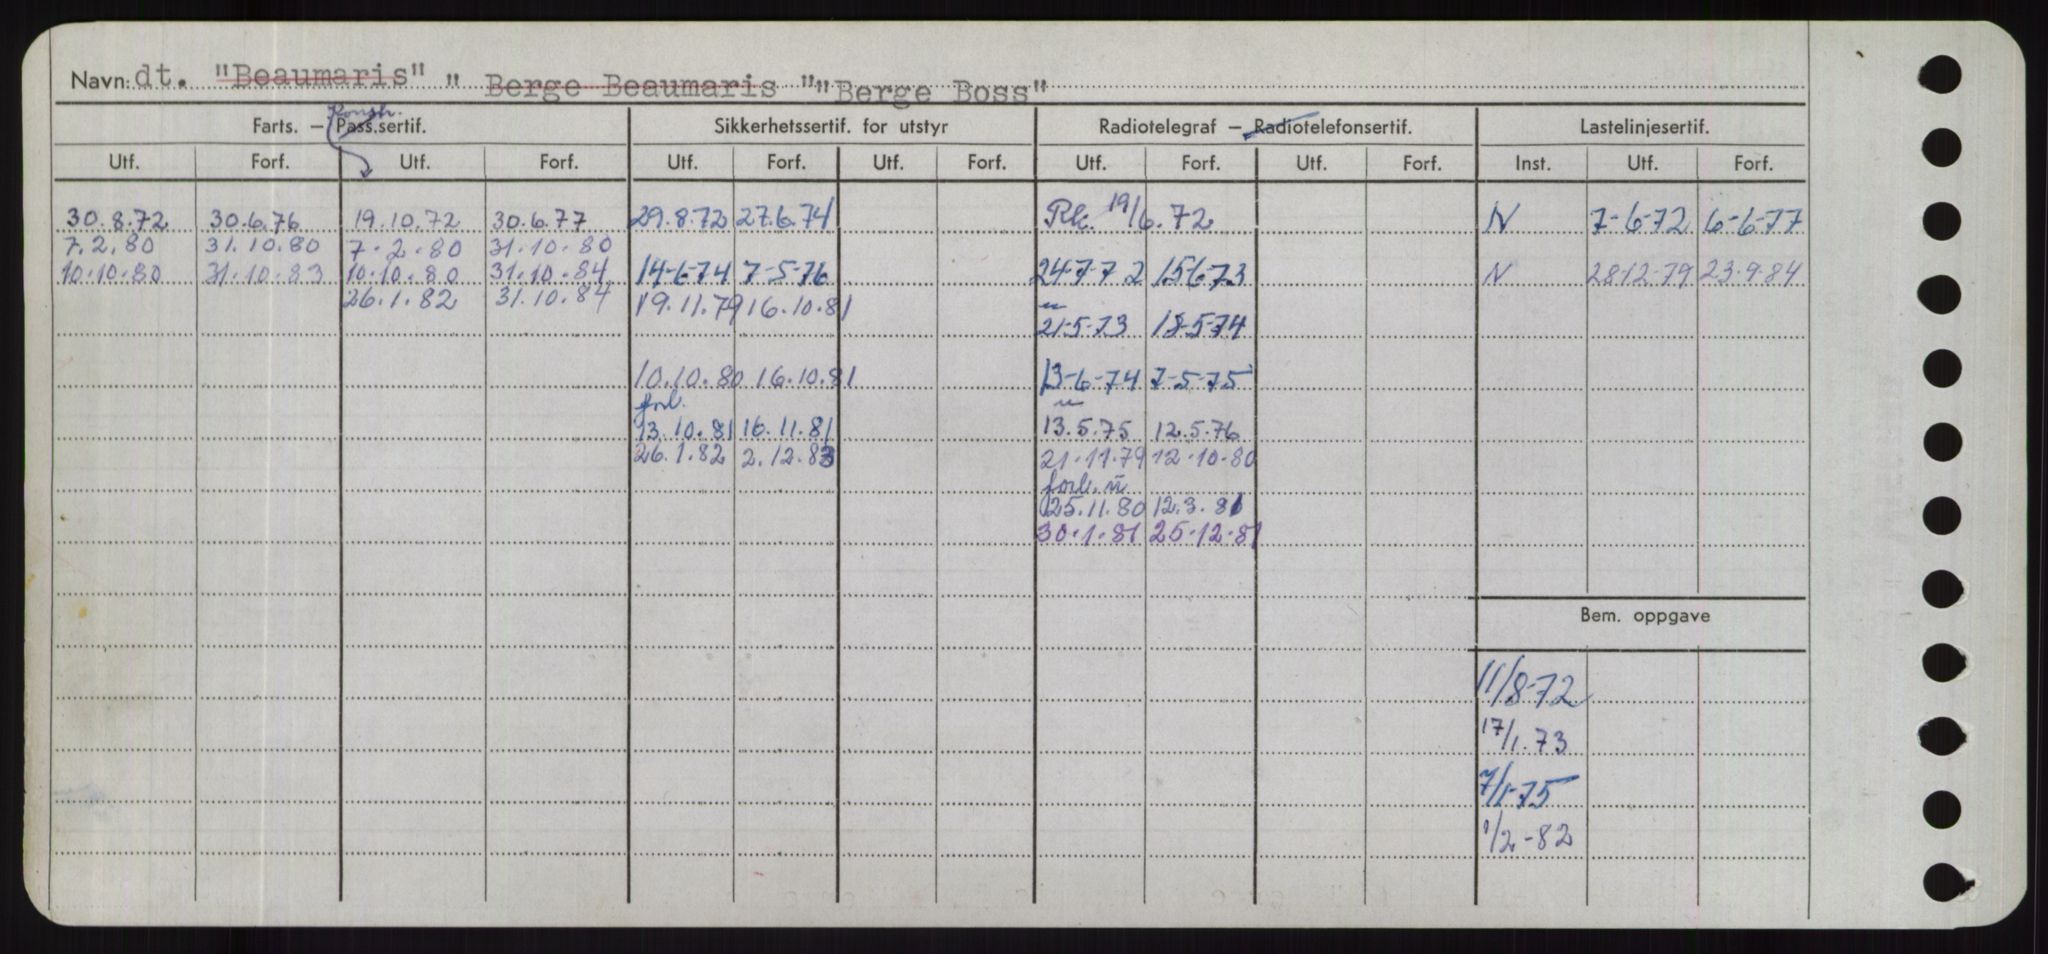 Navn: dt. "Beaumaris" " Berge Beaumaris " "Berge Boss"
Konstr.
Farts. – Pass.sertif. Sikkerhetssertif. for utstyr Radiotelegraf – Radiotelefonsertif. Lastelinjesertif.
Utf. Forf. Utf. Forf. Utf. Forf. Utf. Forf. Utf. Forf. Utf. Forf. Inst. Utf. Forf.
30.8.72 30.6.76 19.10.72 30.6.77 29.8.72 27.6.74 Rk. 19/6.72 N 7-6-72 6-6-77
7.2.80 31.10.80 7-2-80 31-10-80
10-10-80 31-10-83 10-10-80 31.10.84 14-6-74 7-5-76 24-7-72 15673 N 28-12-79 23-9-84
26.1.82 31.10.84 19.11.79 16.10.81 "
21-5-73 18-5-74
10.10.80 16.10.81 13-6-74 7-5-75
forl. "
13.10.81 16.11.81 13.5.75 12.5.76
26.1.82 2.12.83 21-11-79 12-10-80
forl. "
25.11.80 12.3.81
30.1.81 25.12.81
Bem. oppgave
11/8-72
17/1.73
7/1-75
1/2-82